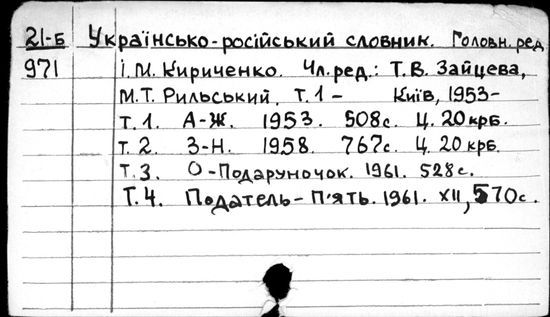 21-Б Українсько-російський словник. Головн. ред.
971 І.М. Кириченко. Чл. ред.: Т.В. Зайцева,
М.Т. Рильський. Т.1 – Київ, 1953-
Т. 1. А-Ж. 1953. 508с. Ц. 20 крб.
Т. 2. З-Н. 1958. 767с. Ц. 20 крб.
Т. 3. О-Подаруночок. 1961. 528с.
Т. 4. Податель – П'ять. 1961. XII, 570с.